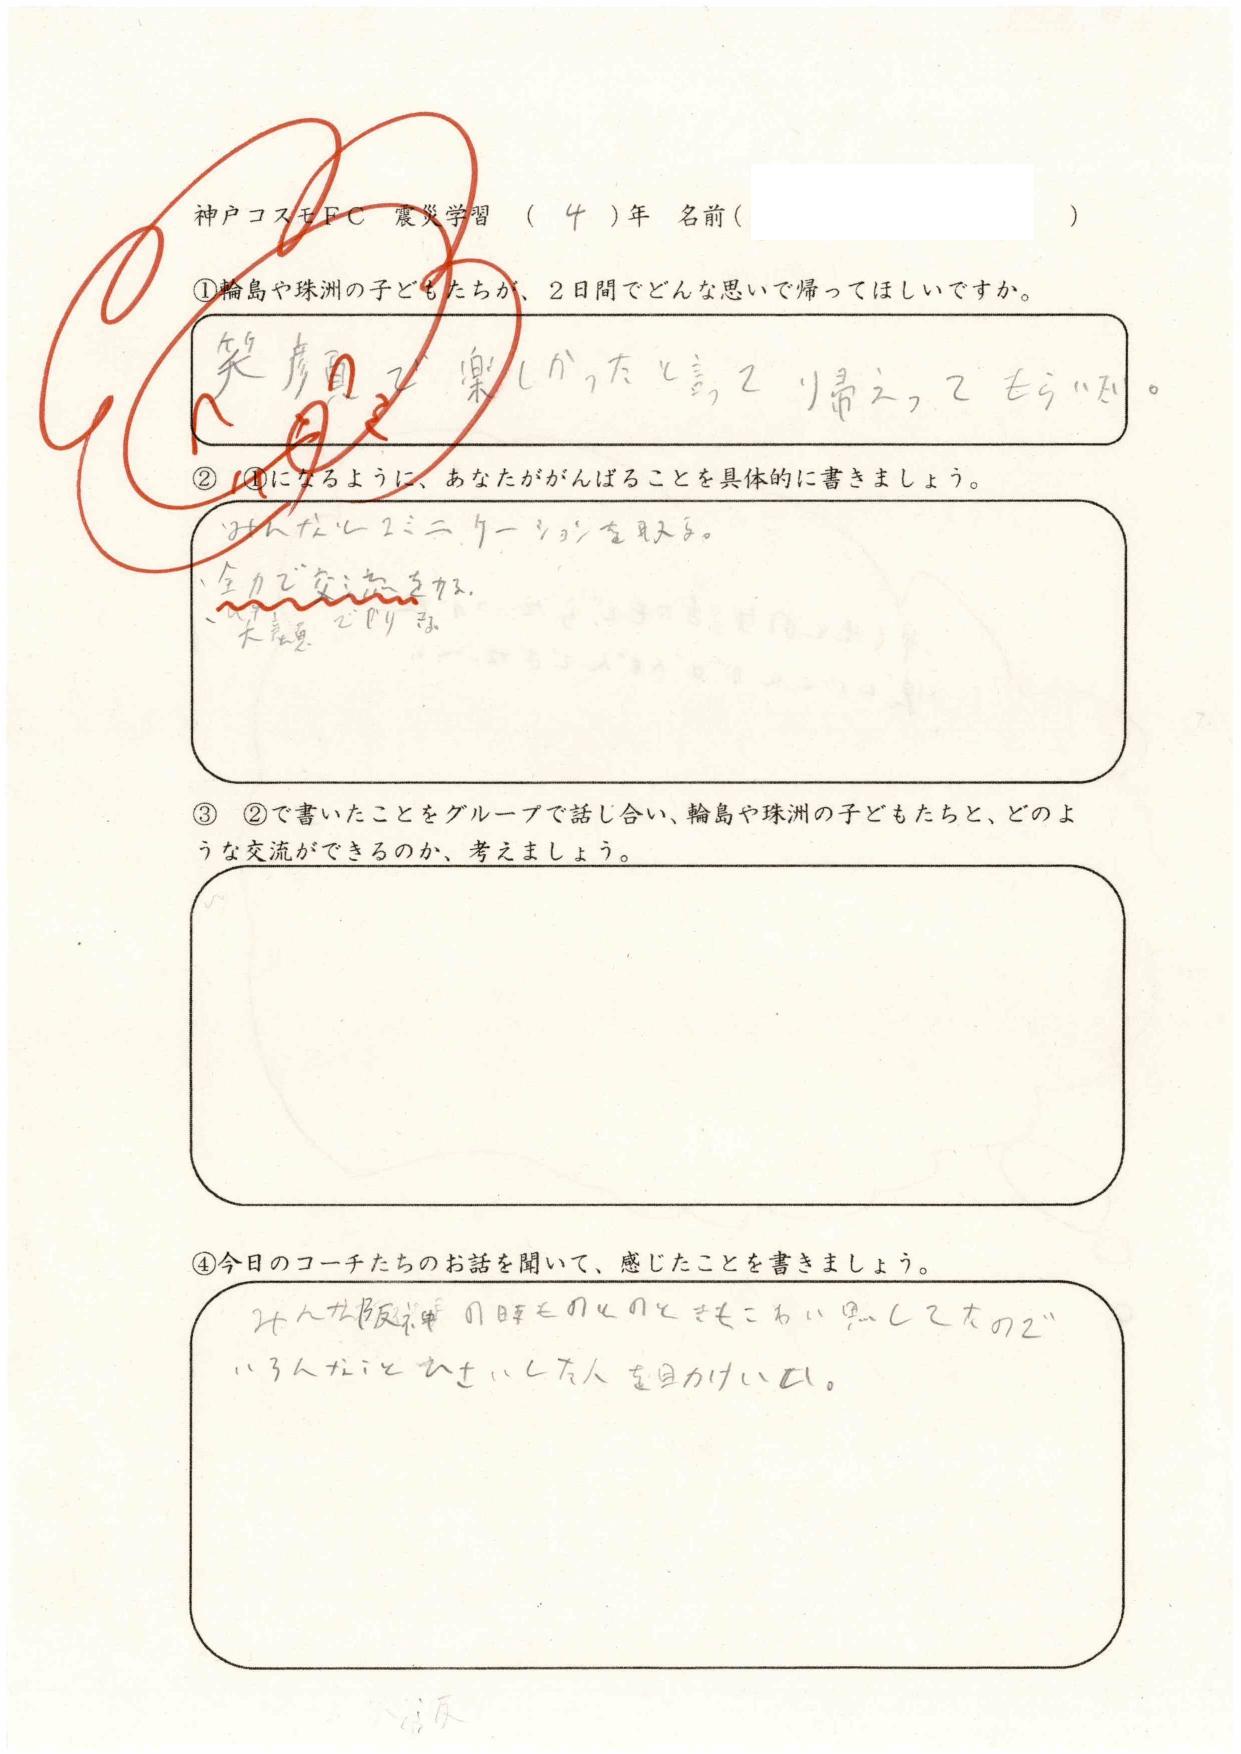 神戸コスモFC 震災学習 （ 4 ）年 名前（ ）
①輪島や珠洲の子どもたちが、２日間でどんな思いで帰ってほしいですか。
笑顔で楽しかったと言って帰えってもらいたい。
② ①になるように、あなたががんばることを具体的に書きましょう。
みんなとコミニケーションを取る。
、全力で交流をする。
、笑顔でやりきる
③ ②で書いたことをグループで話し合い、輪島や珠洲の子どもたちと、どのよ
うな交流ができるのか、考えましょう。
④今日のコーチたちのお話を聞いて、感じたことを書きましょう。
みんな阪神の時ものとのときもこわい思いしてたので
いろんなことひさいした人を助けいたい。